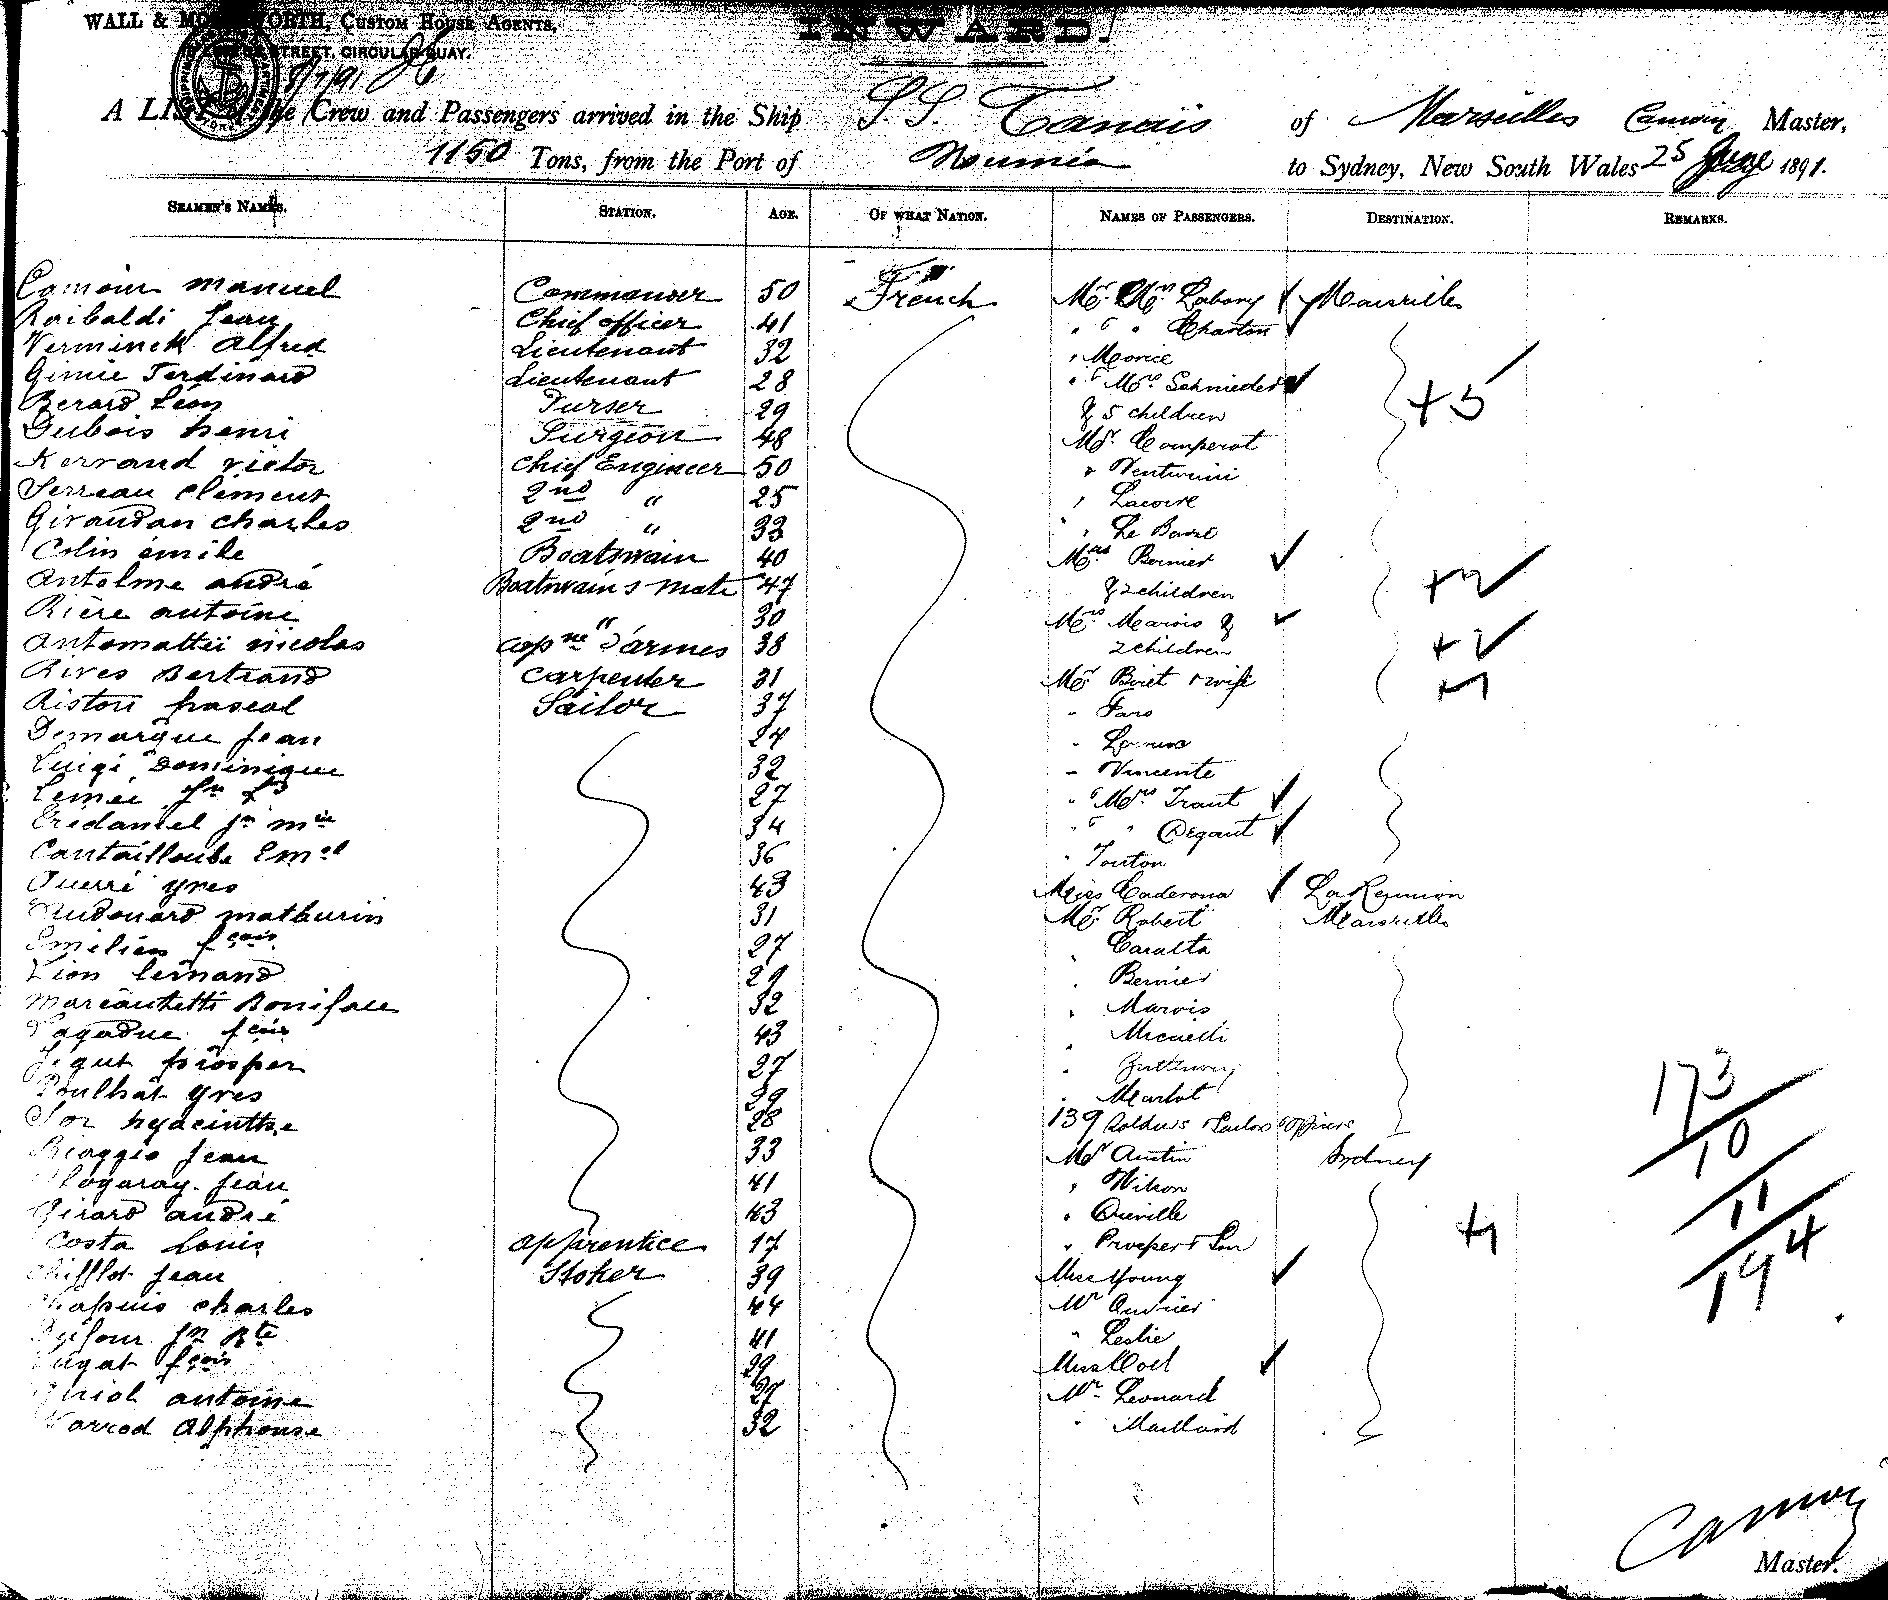 WALL & MOLESWORTH, CUSTOM HOUSE AGENTS,
STREET, CIRCULAR QUAY.
INWARD.
8/7/91
A LIST of the Crew and Passengers arrived in the Ship S.S. Tanais of Marseilles Camoin Master,
1150 Tons, from the Port of Nouméa to Sydney, New South Wales 25 June 1891.
SEAMEN'S NAMES. STATION. AGE. OF WHAT NATION. NAMES OF PASSENGERS. DESTINATION. REMARKS.
Camoin manuel Commander 50 French Mr & Mrs Labory Marseilles
Raibaldi Jean Chief officer 41 " & " Charton
Verminck Alfred Lieutenant 32 " Morice
Gimié Ferdinand Lieutenant 28 " & Mrs Schnieder
Berard Léon Purser 29 & 5 children + 5
Dubois henri Surgeon 48 Mr. Comperot
Kerrand victor chief Engineer 50 " Venturini
Serreau Clément 2nd " 25 " Lacoire
Giraudan charles 2nd " 33 " Le Barel
Colin émile Boatswain 40 Mrs Bernier
Antelme andré Boatswain's mate 47 & 2 children + 2
Rière antoine " 30 Mrs Marois &
Antomattei nicolas cap ne d'armes 38 2 children + 2
Rives Bertrand Carpenter 31 Mr Biret & wife + 1
Ristori pascal Sailor 37 " Faro
Demarque Jean 24
Luigi Dominique 32 " Vincente
Lemée Jn 27 " & Mrs Traut
Credaniel Jn mie 34 " & " Degaut
Cantailloube Emel 36 " Touton
Querré yves 43 Miss Caderona La Reunion
Audouard mathurin 31 Mr Robert Marseilles
Emilien fçois 27 " Caralta
Lion fernand 29 " Bernier
Marcantetti Boniface 32 " Marois
Lagadue fçois 43 " Micaelli
Jégut prosper 27
Poulhat yves 29 " Marlot
Sor hyacinthe 28 139 Soldiers Sailors & Officers
Biaggio Jean 33 Mr Austin Sydney
Jean 41 " Wilson
Girard andré 43 " Queville
Costa Louis apprentice 17 " Prosper & Son + 1
Chifflot Jean Stoker 39 Miss Young
Chapuis charles 44 Mr Audrier
Dufour Jn Bte 41 " Leslie
fçois 29 Miss Coel
antoine 29 Mr Leonard
Warrod Alphonse 32 " Maillard
173
10
11
194
Camoin
Master.